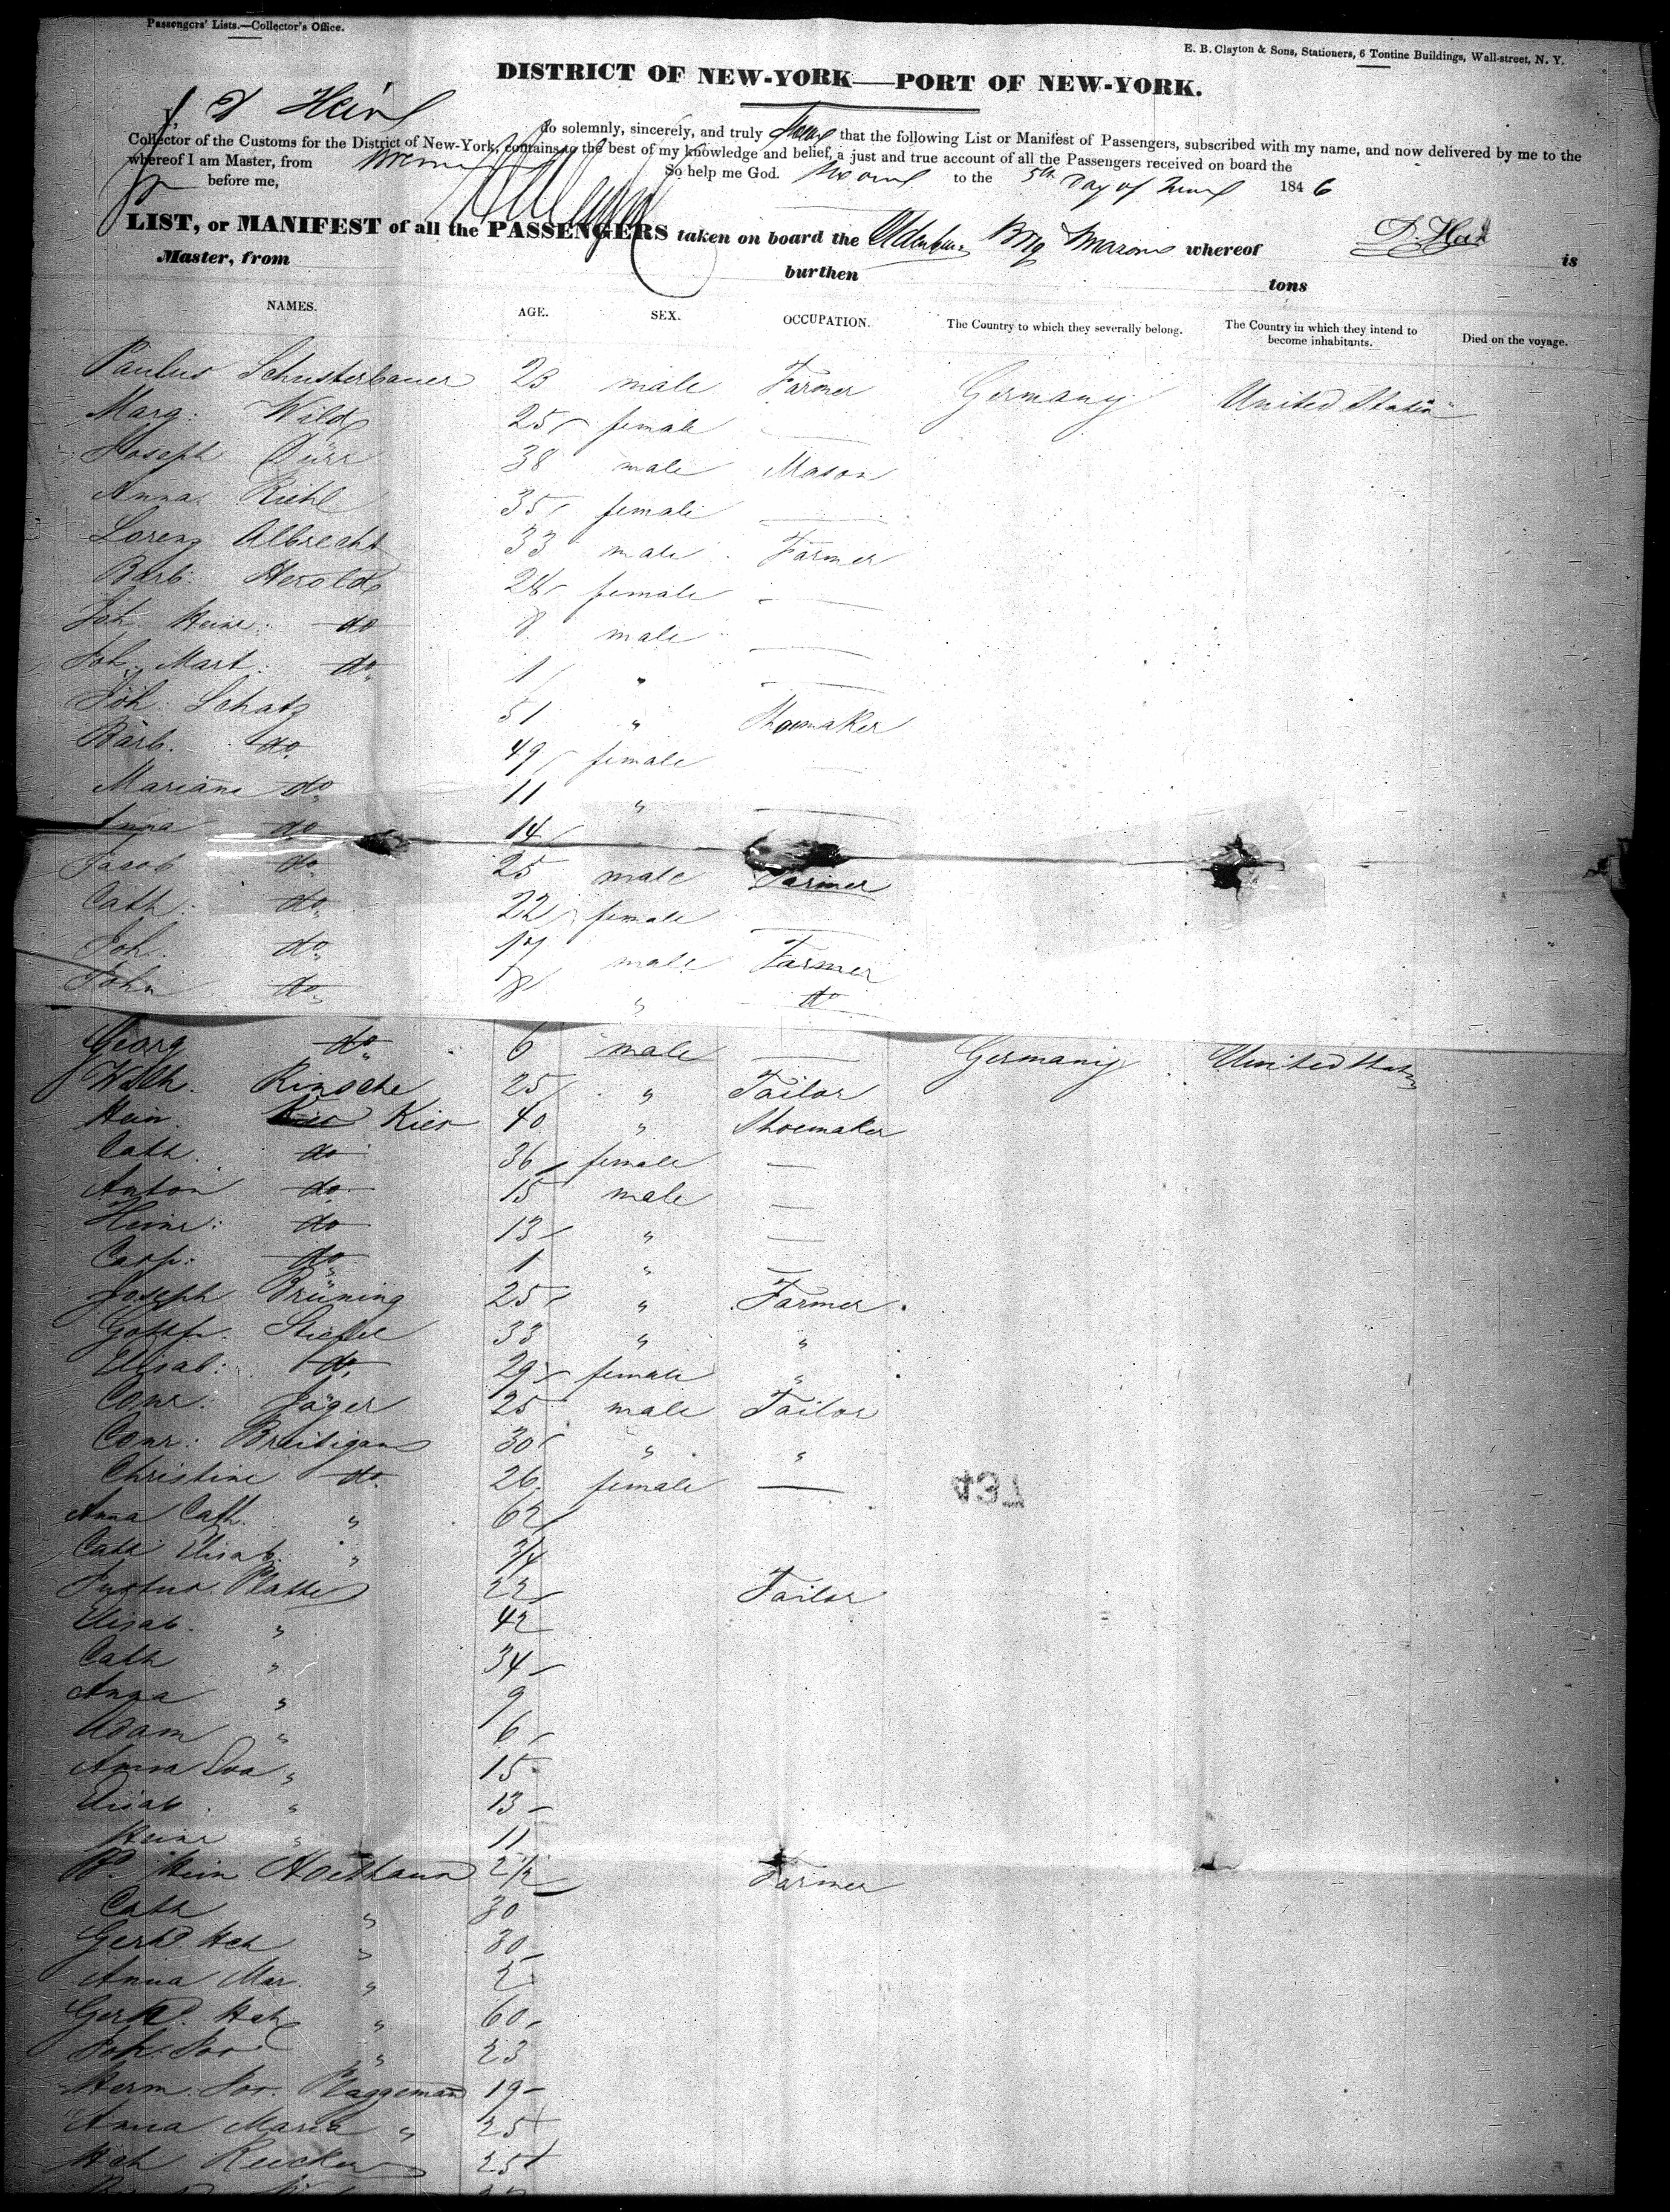 Passengers' Lists.—Collector's Office.
E. B. Clayton & Sons, Stationers, 6 Tontine Buildings, Wall-street, N. Y.
DISTRICT OF NEW-YORK—PORT OF NEW-YORK.
I, D Hein do solemnly, sincerely, and truly that the following List or Manifest of Passengers, subscribed with my name, and now delivered by me to the
Collector of the Customs for the District of New-York, contains to the best of my knowledge and belief, a just and true account of all the Passengers received on board the
whereof I am Master, from Bremen So help me God. Sworn to the 5th Day of 1846
before me,
LIST, or MANIFEST of all the PASSENGERS taken on board the Brig whereof is
Master, from burthen tons
NAMES. AGE. SEX. OCCUPATION. The Country to which they severally belong. The Country in which they intend to become inhabitants. Died on the voyage.
Paulus Schusterbauer 23 male Farmer Germany United States
Marg: Wild 25 female —
Joseph Dürr 38 male Mason
Anna Riehl 35 female —
Lorenz Albrecht 33 male Farmer
Barb: Herold female —
Joh. Heinr: do 8 male —
Joh. Mart: do 1 " —
Joh. Schatz 51 " Shoemaker
Barb. do 49 female —
Mariane do 11 " —
Anna do 14
Jacob do 25 male Farmer
Cath: do 22 female —
Joh. do 17 male Farmer
John do 8 " do
Georg do 6 male — Germany United States
Wilh. Rinsche 25 " Tailor
Hein. Kies 40 " Shoemaker
Cath. do 36 female —
Anton do 15 male —
Heinr: do 13 " —
Casp: do 1 " —
Joseph Brüning 25 " Farmer
Gottfr. Stiefel 33 " "
Elisab: do 29 female "
Conr: Jäger 25 male Tailor
Conr: Breitigam 30 " "
Christine do 26 female —
437
Anna Cath. " 62
Cath Elisab. " 3/4
Justus Platte 22 Tailor
Elisab. " 42
Cath " 34
Anna " 9
Adam " 6
Anna Eva " 15
Elisab. " 13
Heinr " 11
Hein 2 1/2 Farmer
Cath " 30
Gerhd. Hch " 30
Anna Mar. " 2
Gerhd. Hch " 60
Joh. " 23
Herm. Plaggeman 19
Anna Maria " 25
Hch 25